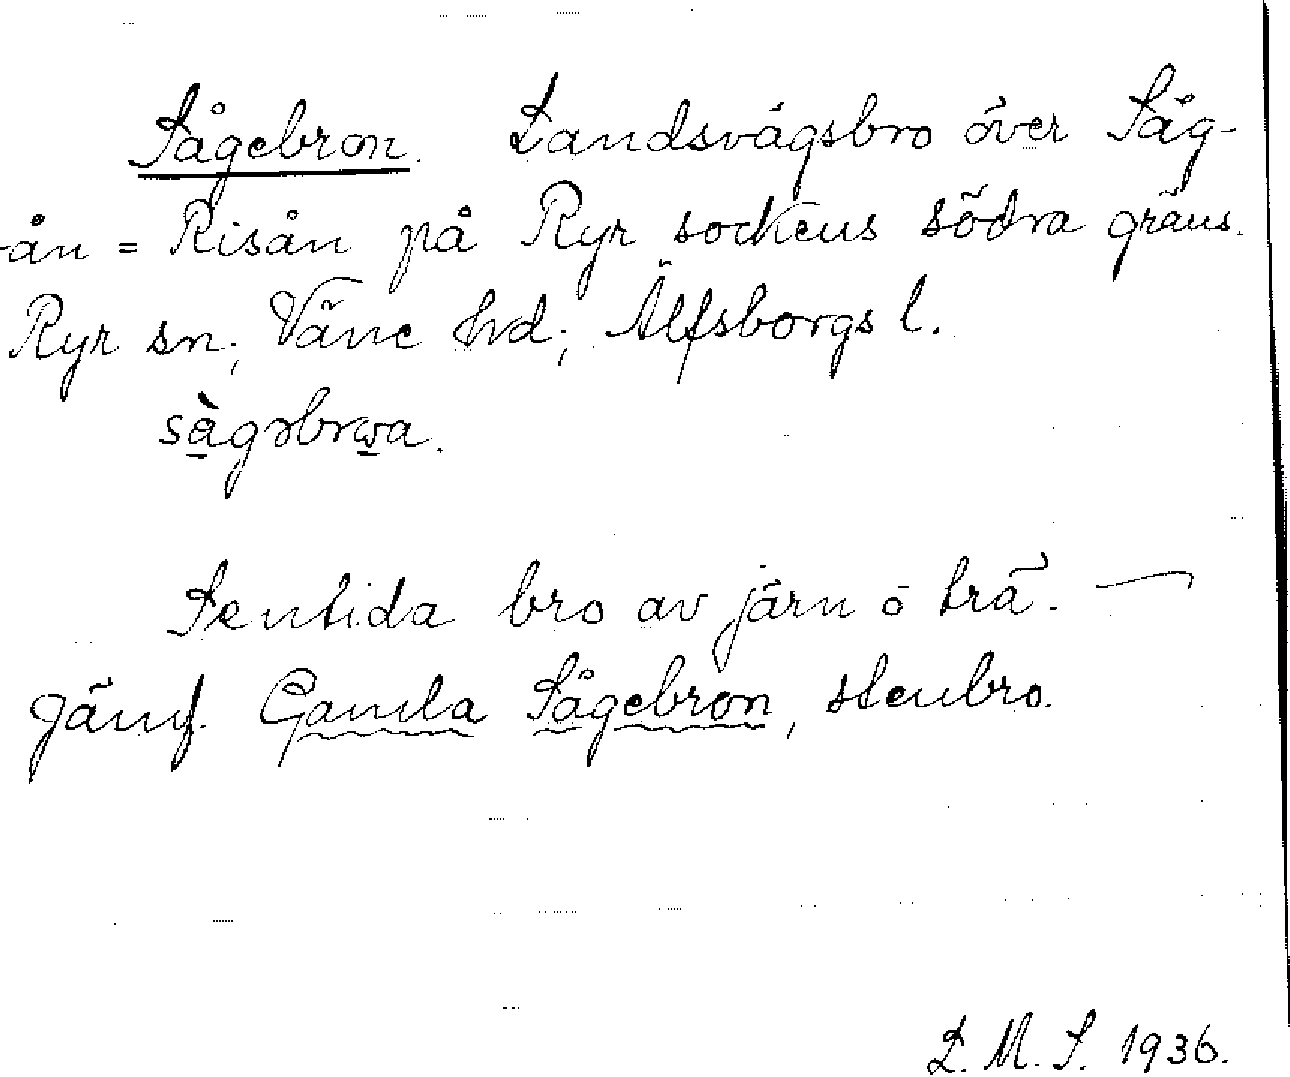 Sågebron. Landsvägsbro över Såg-
ån = Risån på Ryr sockens södra gräns.
Ryr sn; Väne hd; Älfsborgs l.
sàgəbrωa.
Sentida bro av järn o trä. —
Jämf. Gamla Sågebron, stenbro.
L. M. S. 1936.